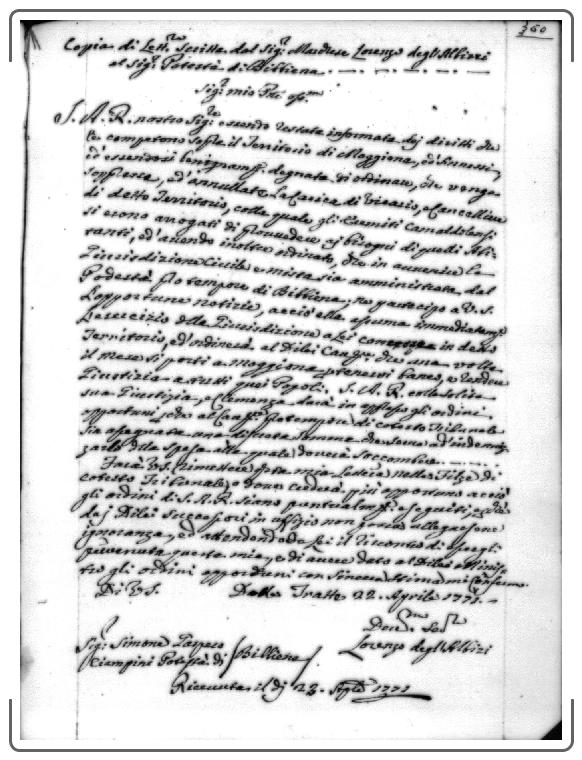 360
Copia di Lett.ra Scritta dal Sig.r Marchese Lorenzo degl'Albizi
al Sig.r Potestà di Bibbiena
Sig.r mio
S. A. R. nostro Sig.re essendo restata informata dei diritti che
Le competono sopra il Territorio di Moggiona, ed annessi,
ed essendosi benignam.te degnata di ordinare, che venga
soppressa, ed annullata La Carica di Vicario, e Cancelliere
di detto Territorio, colla quale gli Eremiti Camaldolensi
si erono arrogati di provvedere ai bisogni di quelli Abi-
tanti, ed avendo inoltre ordinato, che in avvenire la
Giurisdizione Civile e mista sia amministrata dal
Podestà p.ro tempore di Bibbiena; ne partecipo a V. S.
L'opportune notizie, acciò ella assuma immediatam.te
L'esercizio della Giurisdizione a Lei in detto
Territorio, ed ordinerà al Dilei Canc.re che una volta
il mese si porti a Moggiona a tenervi banco, e rendere
Giustizia a tutti quei Popoli. S. A. R. colla solita
sua Giustizia, e Clemenza darà in appresso gli ordini
opportuni, p.che al Canc.re p.ro tempore di cotesto Tribunale
sia assegnata una discreta somma ad indeniz-
zarlo della spesa alla quale doverà soccombere.
Farà V. S. rimettere q.sta mia Lettera nelle Filze di
cotesto Tribunale, o dove crederà più opportuno acciò
gli ordini di S. A. R. siano puntualm.te eseguiti, e
dai Dilei Successori in uffizio non possa allegarsene
ignoranza, ed attendendo da Lei il riscontro di essergli
pervenuta questa mia, e di avere dato al Dilei Minis-
tro gli ordini opportuni con sincera stima mi confermo.
Di V. S. Dalle Tratte 22. Aprile 1771.
Dev.mo Se.re
Sig.r Simone Lorenzo degl'Albizi
Ciampini Potestà di Bibbiena
Ricevuta il dì 23. 1771